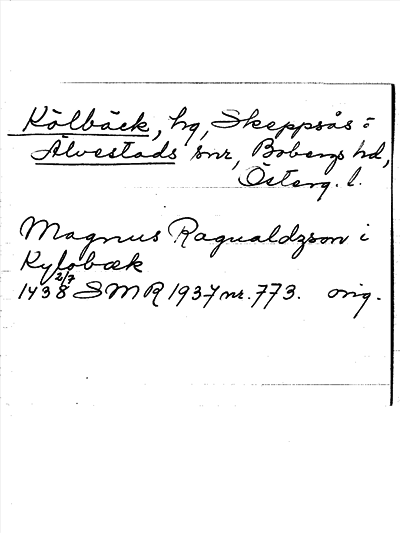 Kölbäck, hg, Skeppsås o
Älvestads snr, Bobergs hd,
Österg. l.
Magnus Ragualdzson i
Kylobæk
1438 2/7 SMR 1937 nr. 773. orig.